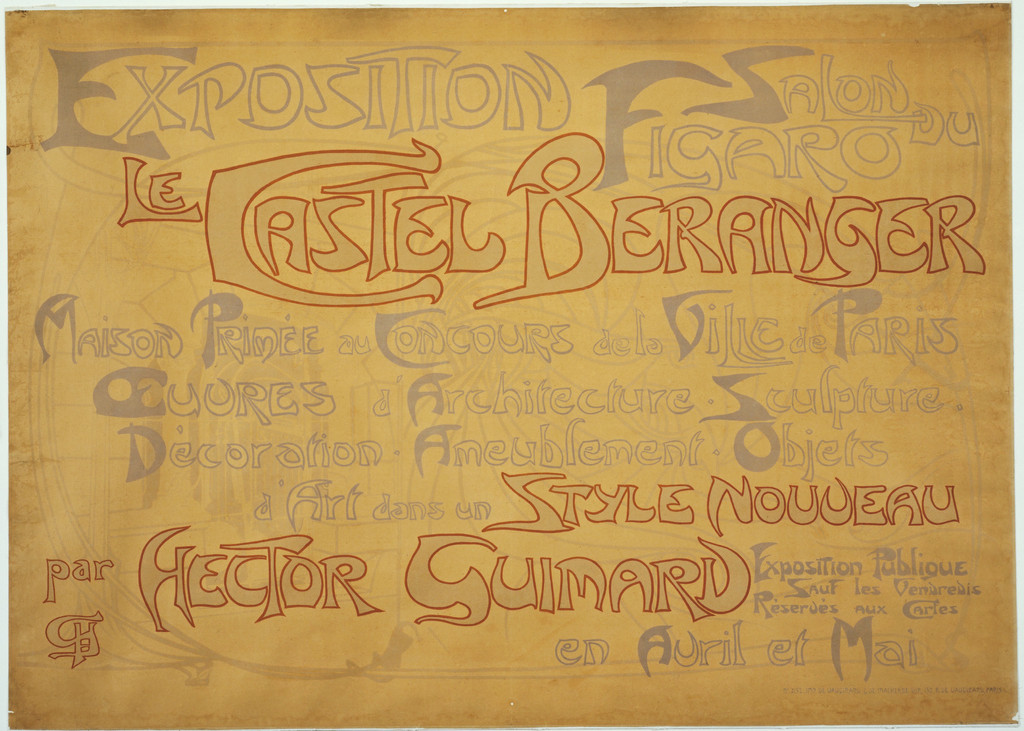 EXPOSITION SALON DU
FIGARO
LE CASTEL BERANGER
MAISON PRIMÉE au CONCOURS de la VILLE de PARIS
ŒUVRES d'Architecture. Sculpture.
Décoration. Ameublement. Objets
d'Art dans un STYLE NOUVEAU
par HECTOR GUIMARD
Exposition Publique
Sauf les Vendredis
Réservés aux Cartes
en Avril et Mai